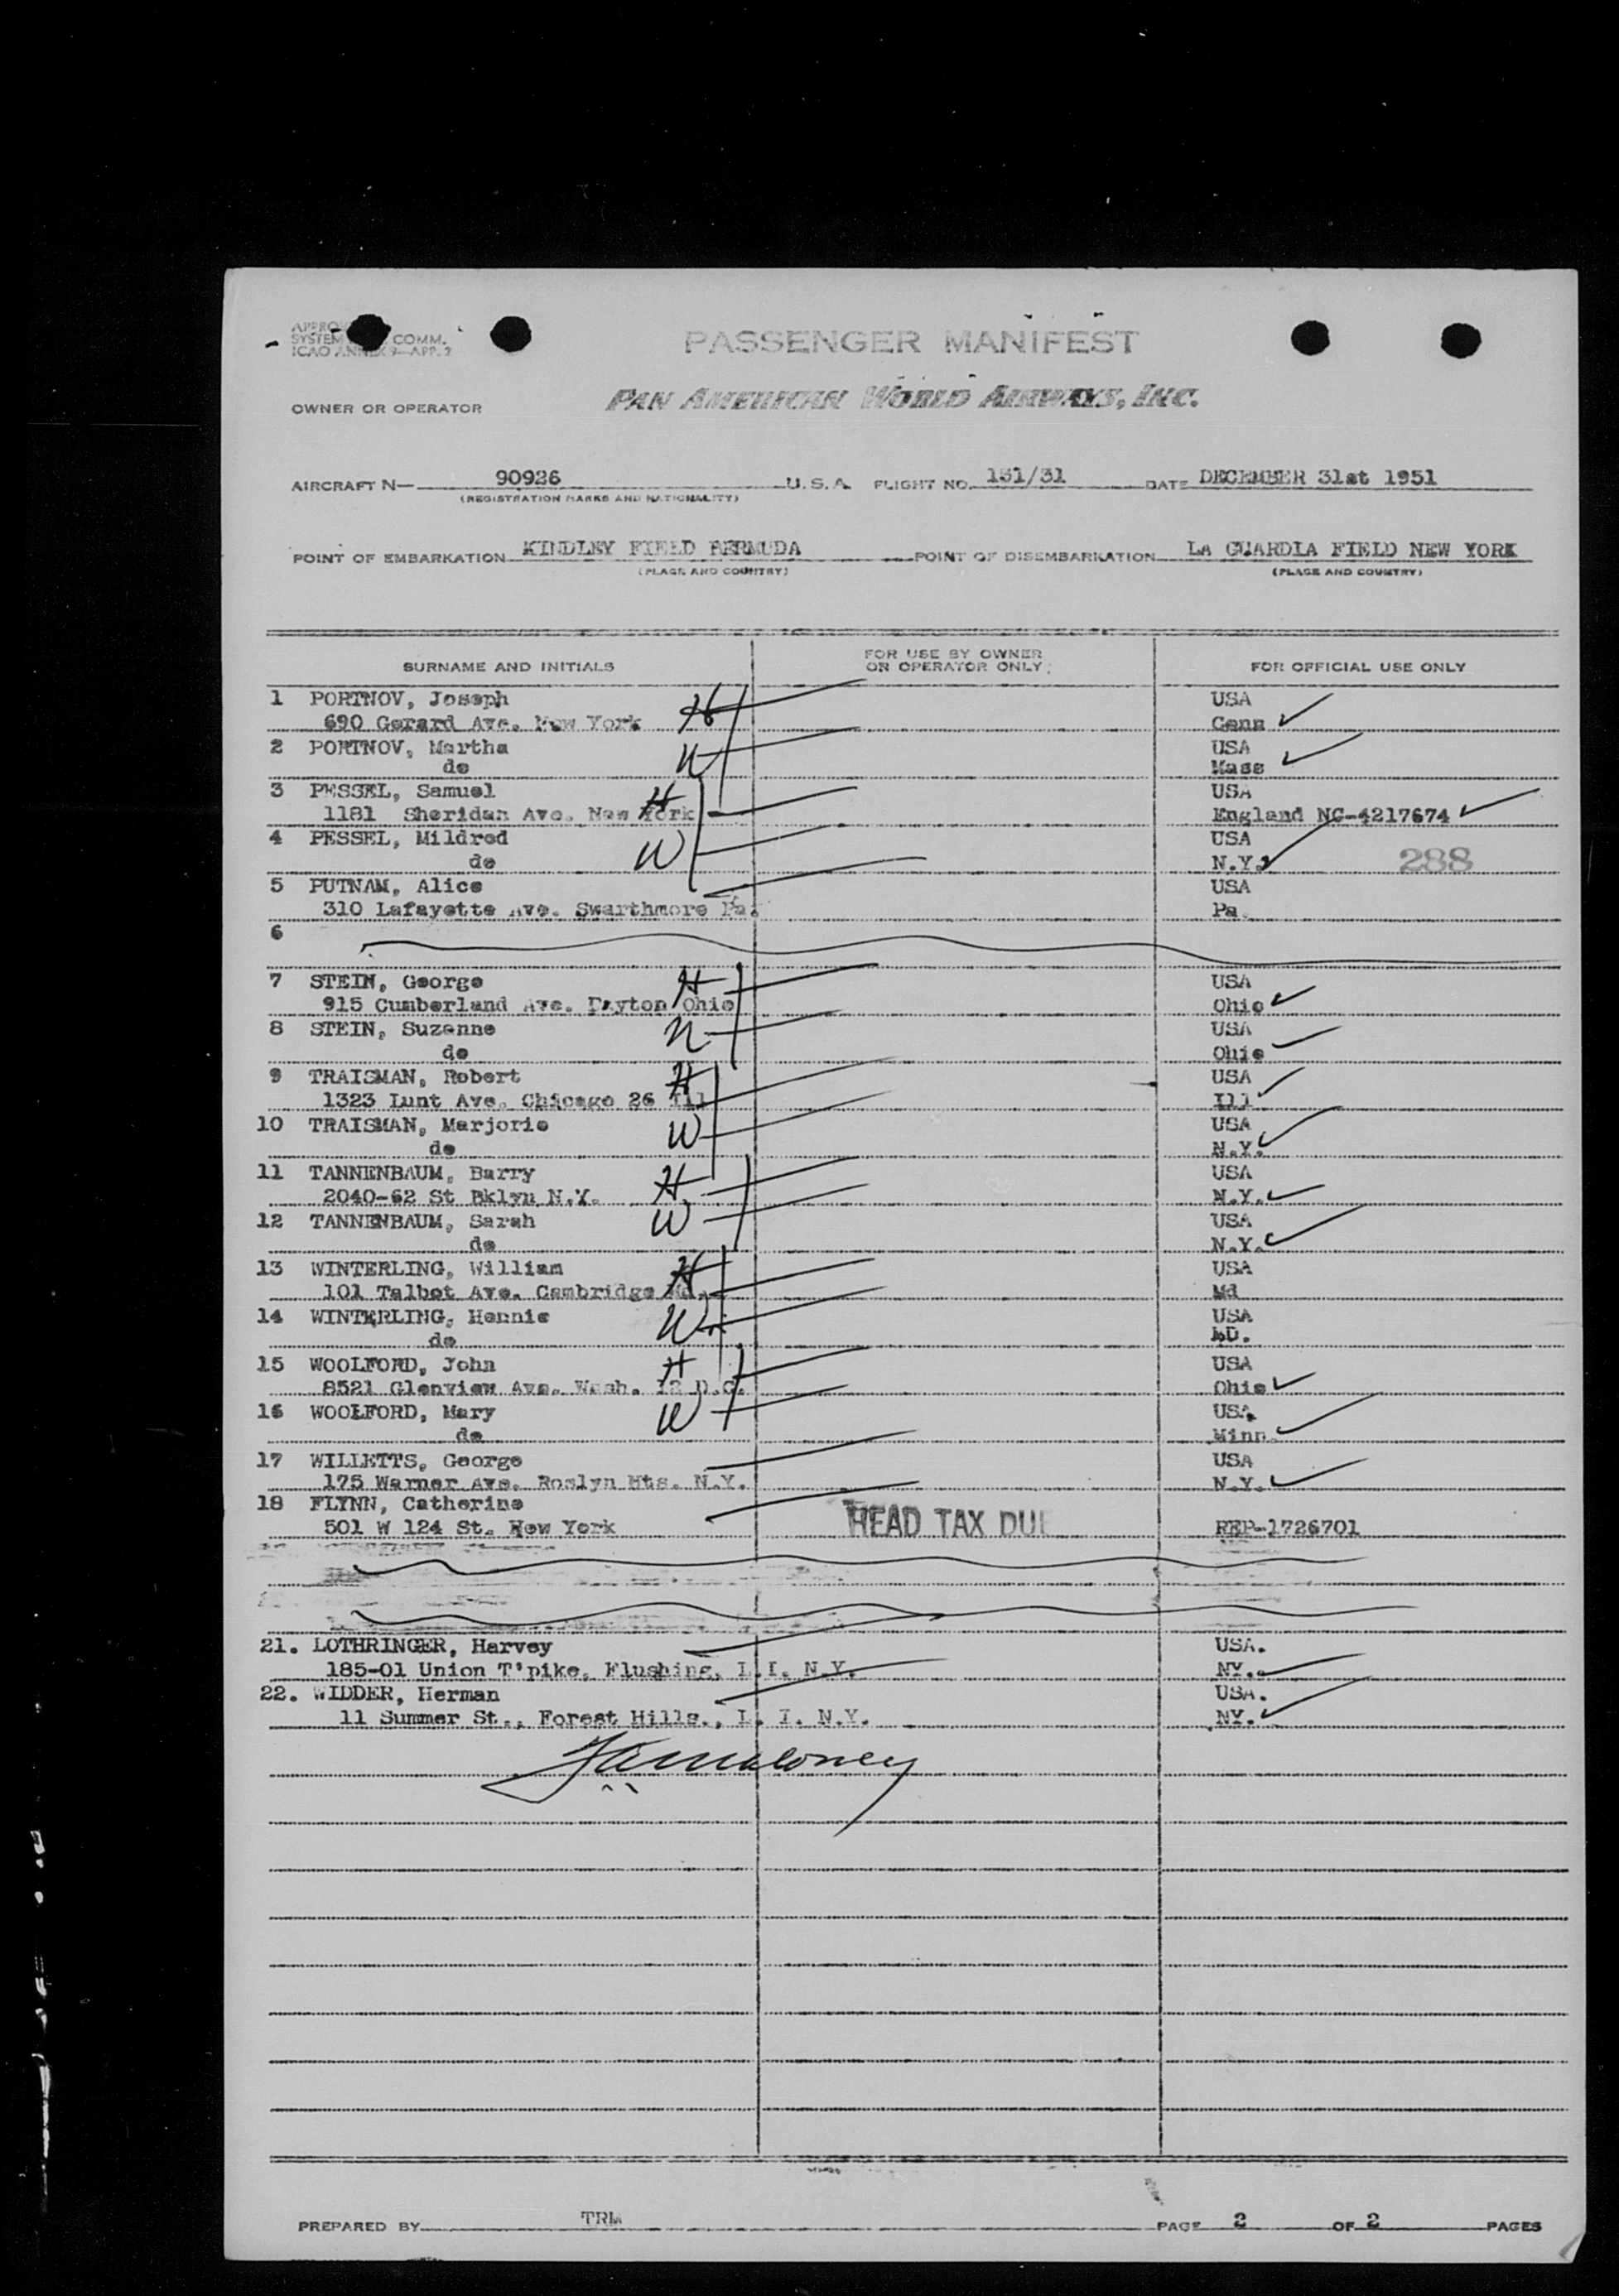 SYSTEM COMM.
ICAO ANNEX 9—APP. 2
PASSENGER MANIFEST
OWNER OR OPERATOR PAN AMERICAN WORLD AIRWAYS, INC.
AIRCRAFT N— 90926 U.S.A. FLIGHT NO. 131/31 DATE DECEMBER 31st 1951
(REGISTRATION MARKS AND NATIONALITY)
POINT OF EMBARKATION KINDLEY FIELD BERMUDA POINT OF DISEMBARKATION LA GUARDIA FIELD NEW YORK
(PLACE AND COUNTRY) (PLACE AND COUNTRY)
SURNAME AND INITIALS FOR USE BY OWNER OR OPERATOR ONLY FOR OFFICIAL USE ONLY
1 PORTNOV, Joseph H USA
690 Gerard Ave. New York Conn
2 PORTNOV, Martha W USA
do Mass
3 PESSEL, Samuel H USA
1181 Sheridan Ave. New York England NC-4217674
4 PESSEL, Mildred W USA
do N.Y. 288
5 PUTNAM, Alice USA
310 Lafayette Ave. Swarthmore Pa. Pa.
6
7 STEIN, George H USA
915 Cumberland Ave. Dayton Ohio Ohio
8 STEIN, Suzanne W USA
do Ohio
9 TRAISMAN, Robert H USA
1323 Lunt Ave. Chicago 26 Ill Ill
10 TRAISMAN, Marjorie W USA
do N.Y.
11 TANNENBAUM, Barry H USA
2040-62 St Bklyn N.Y. N.Y.
12 TANNENBAUM, Sarah W USA
do N.Y.
13 WINTERLING, William H USA
101 Talbot Ave. Cambridge Md. Md
14 WINTERLING, Hennie W USA
do MD.
15 WOOLFORD, John H USA
8521 Glenview Ave. Wash. 12 D.C. Ohio
16 WOOLFORD, Mary W USA
do Minn.
17 WILLETTS, George USA
175 Warner Ave. Roslyn Hts. N.Y. N.Y.
18 FLYNN, Catherine
501 W 124 St. New York HEAD TAX DUE REP-1726701
21. LOTHRINGER, Harvey USA.
185-01 Union T'pike, Flushing, L.I. N.Y. NY.
22. WIDDER, Herman USA.
11 Summer St., Forest Hills., L. I. N.Y. NY.
PREPARED BY TRM PAGE 2 OF 2 PAGES